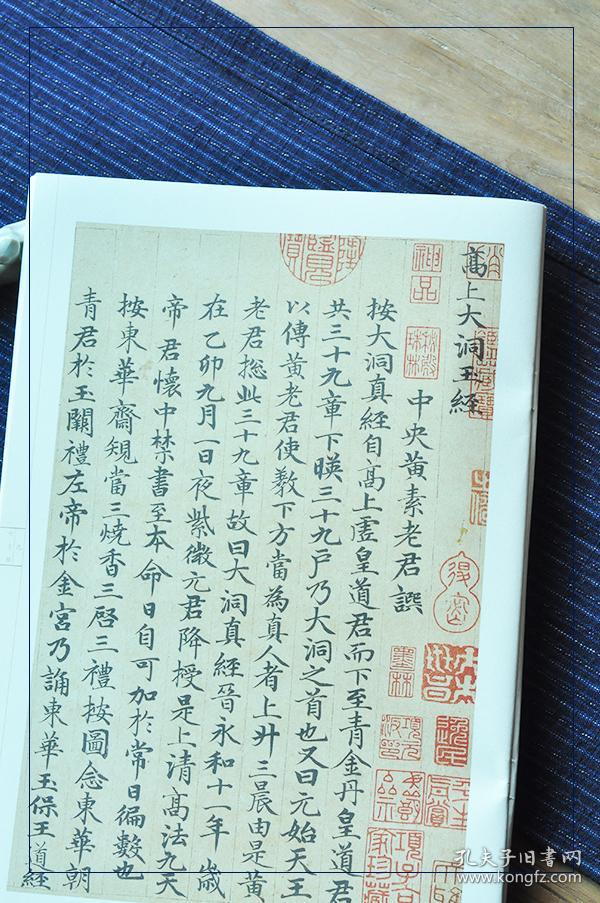 高上大洞玉經
中央黃素老君譔
按大洞真經自高上虛皇道君而下至青金丹皇道君
共三十九章下暎三十九戶乃大洞之首也又曰元始天王
以傳黃老君使教下方當為真人者上升三晨由是黃
老君揔此三十九章故曰大洞真經晉永和十一年歲
在乙卯九月一日夜紫微元君降授是上清高法九天
帝君懷中禁書至本命日自可加於常日徧數也
按東華齋規當三燒香三啓三禮按圖念東華朝
青君於玉闕禮左帝於金宮乃誦東華玉保王道經
神品
墨林
子孫
項元汴印
項墨林
家珍藏
孔夫子旧书网
www.kongfz.com